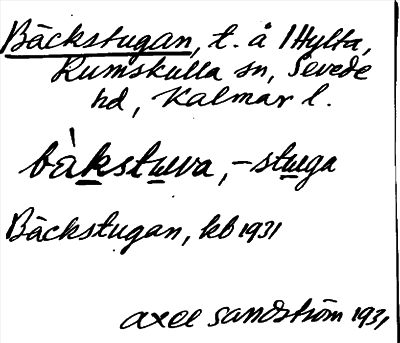 Bäckstugan, t. å 1 Hylta,
Rumskulla sn, Sevede
hd, Kalmar l.
bàkstuva, -stuga
Bäckstugan, kb 1931
Axel Sandström 1931